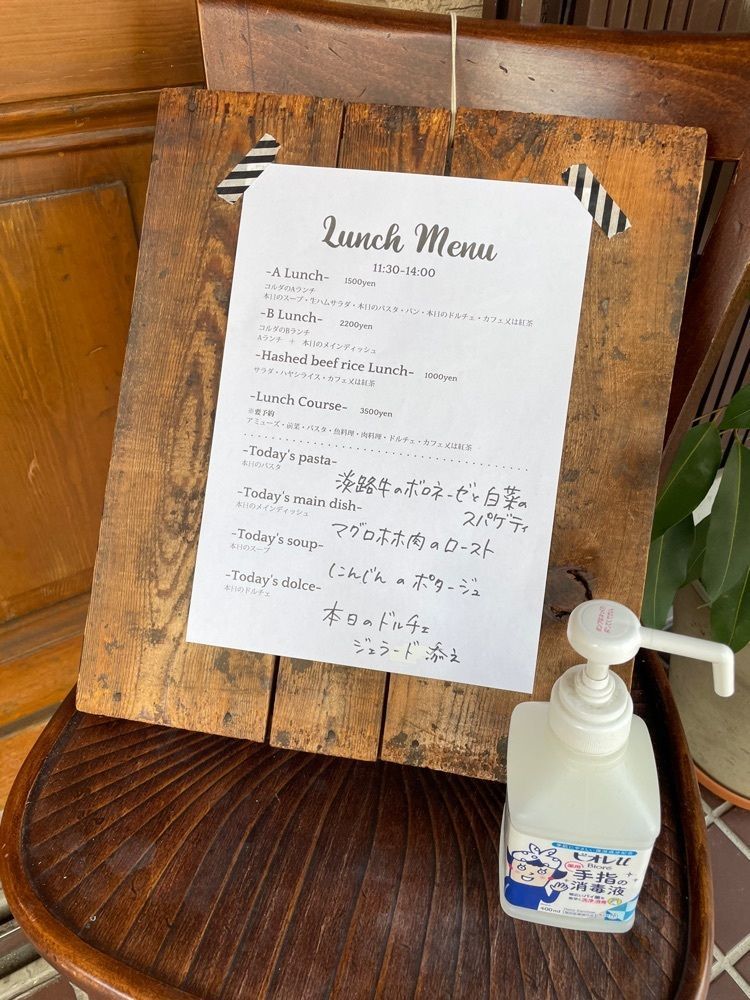 Lunch Menu
11:30-14:00
-A Lunch- 1500yen
コルダのAランチ
本日のスープ・生ハムサラダ・本日のパスタ・パン・本日のドルチェ・カフェ又は紅茶
-B Lunch- 2200yen
コルダのBランチ
Aランチ ＋ 本日のメインディッシュ
-Hashed beef rice Lunch- 1000yen
サラダ・ハヤシライス・カフェ又は紅茶
-Lunch Course- 3500yen
※要予約
アミューズ・前菜・パスタ・魚料理・肉料理・ドルチェ・カフェ又は紅茶
-Today's pasta-
本日のパスタ
淡路牛のボロネーゼと白菜の
スパゲティ
-Today's main dish-
本日のメインディッシュ
マグロホホ肉のロースト
-Today's soup-
本日のスープ
にんじんのポタージュ
-Today's dolce-
本日のドルチェ
本日のドルチェ
ジェラード添え
ビオレu
Biore
薬用
手指の
消毒液
400ml